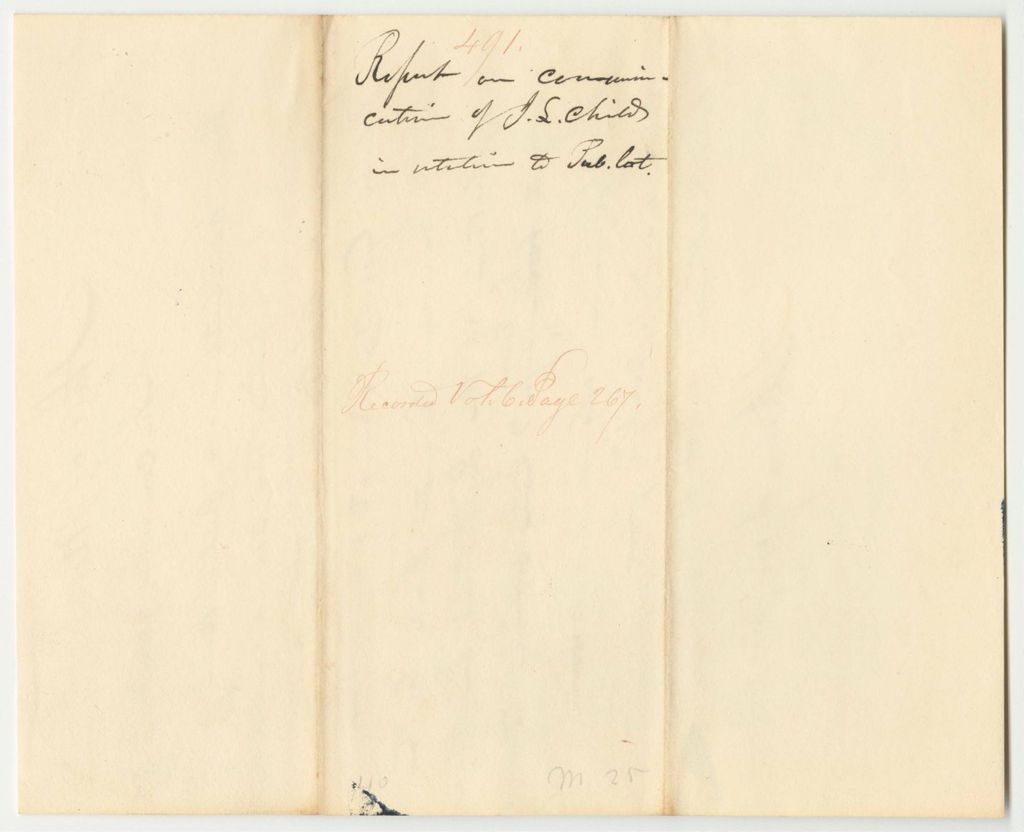 491.
Report on communi-
cation of J. L. Child
in relation to Pub. lot.
Recorded Vol. 6. Page 267.
110
M 25